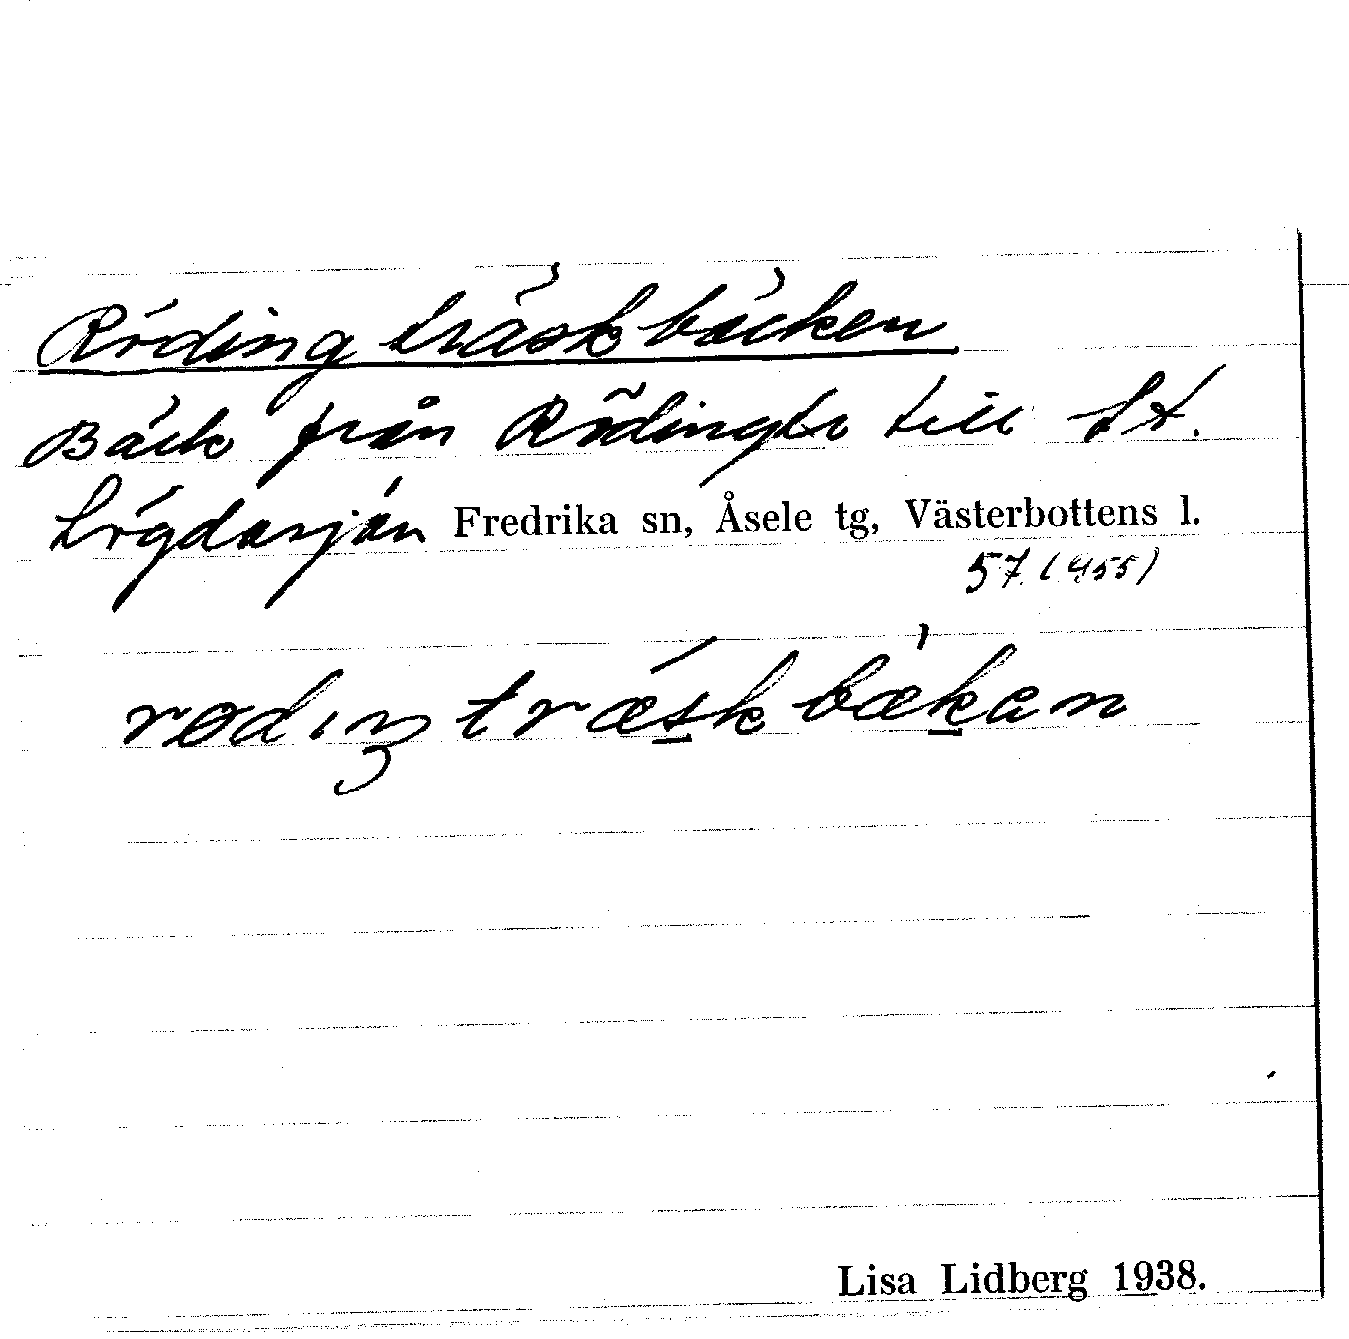 Rödingträskbäcken
Bäck från Rödingtr till St.
Lögdasjön Fredrika sn, Åsele tg, Västerbottens l.
57. (455)
rødıŋtræskbækan
Lisa Lidberg 1938.